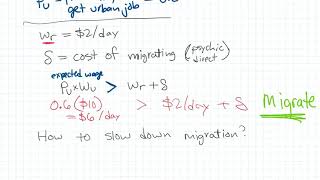 get urban job
wr = $2/day
δ = cost of migrating (psychic direct)
expected wage
Pu×wu > wr + δ
0.6($10) > $2/day + δ Migrate
= $6/day
How to slow down migration?